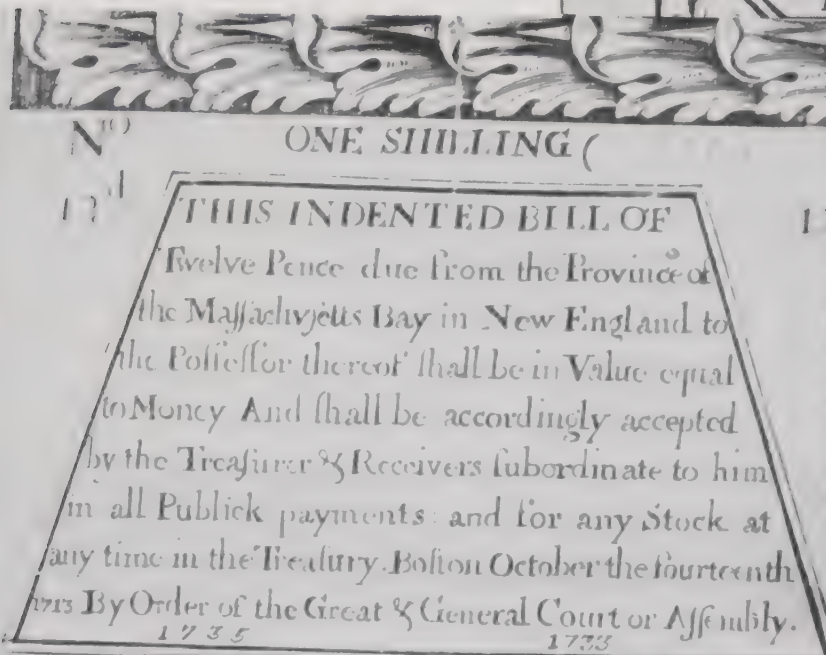 N⁽⁰⁾ ONE SHILLING (
12ᵈ
THIS INDENTED BILL OF
Twelve Pence due from the Province of
the Maſſachuſetts Bay in New England to
the Poſſeſſor thereof ſhall be in Value equal
to Money And ſhall be accordingly accepted
by the Treaſurer & Receivers ſubordinate to him
in all Publick payments and for any Stock at
any time in the Treaſury. Boſton October the fourteenth
1713 By Order of the Great & General Court or Aſſembly.
1735 1733